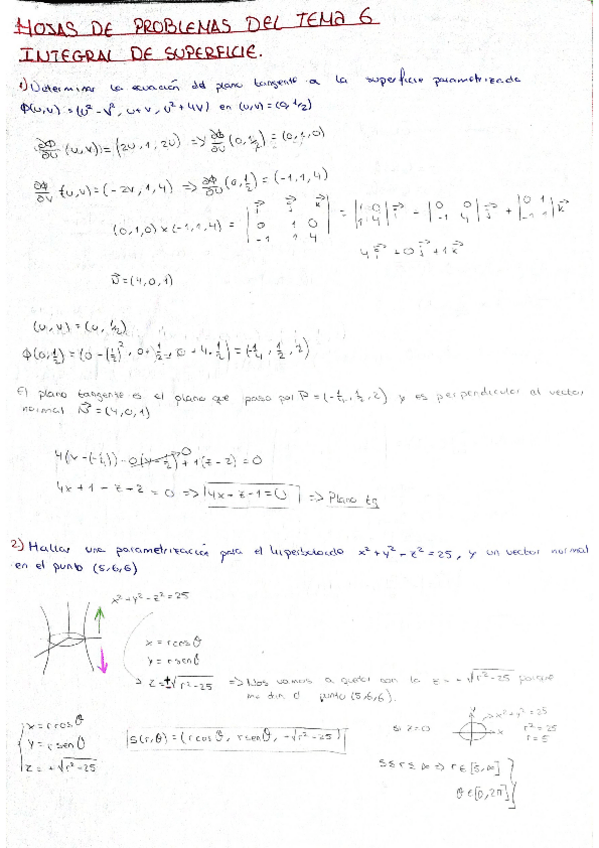 HOJAS DE PROBLEMAS DEL TEMA 6
INTEGRAL DE SUPERFICIE.
1) Determinar la ecuación del plano tangente a la superficie parametrizada
ϕ(u,v) = (u² - v², u+v, u²+4v) en (u,v) = (0, 1/2)
∂Φ/∂u (u,v) = (2u, 1, 2u) => ∂Φ/∂u (0, 1/2) = (0,1,0)
∂Φ/∂v (u,v) = (-2v, 1, 4) => ∂Φ/∂v (0, 1/2) = (-1, 1, 4)
(0,1,0) x (-1,1,4) = | i j k ; 0 1 0 ; -1 1 4 | = | 1 0 ; 1 4 | i - | 0 0 ; -1 4 | j + | 0 1 ; -1 1 | k
4i + 0j + 1k
N = (4, 0, 1)
(u,v) = (0, 1/2)
ϕ(0, 1/2) = (0 - (1/2)², 0 + 1/2, 0 + 4·1/2) = (-1/4, 1/2, 2)
El plano tangente es el plano que pasa por P = (-1/4, 1/2, 2) y es perpendicular al vector
normal N = (4,0,1)
4(x-(-1/4)) - 0(y - 1/2) + 1(z - 2) = 0
4x + 1 - z - 2 = 0 => 4x - z - 1 = 0 => Plano tg
2) Hallar una parametrización para el hiperboloide x² + y² - z² = 25, y un vector normal
en el punto (5,6,6)
x² + y² - z² = 25
x = r cos θ
y = r sen θ
z = ± √r² - 25 => Nos vamos a quedar con la z = - √r² - 25 porque
me dan el punto (5,6,6).
x = r cos θ
y = r sen θ
z = + √r² - 25
S(r, θ) = (r cos θ, r sen θ, - √r² - 25)
si z = 0
x² + y² = 25
r² = 25
r = 5
5 ≤ r ≤ ∞ => r ∈ [5, ∞]
θ ∈ [0, 2π]